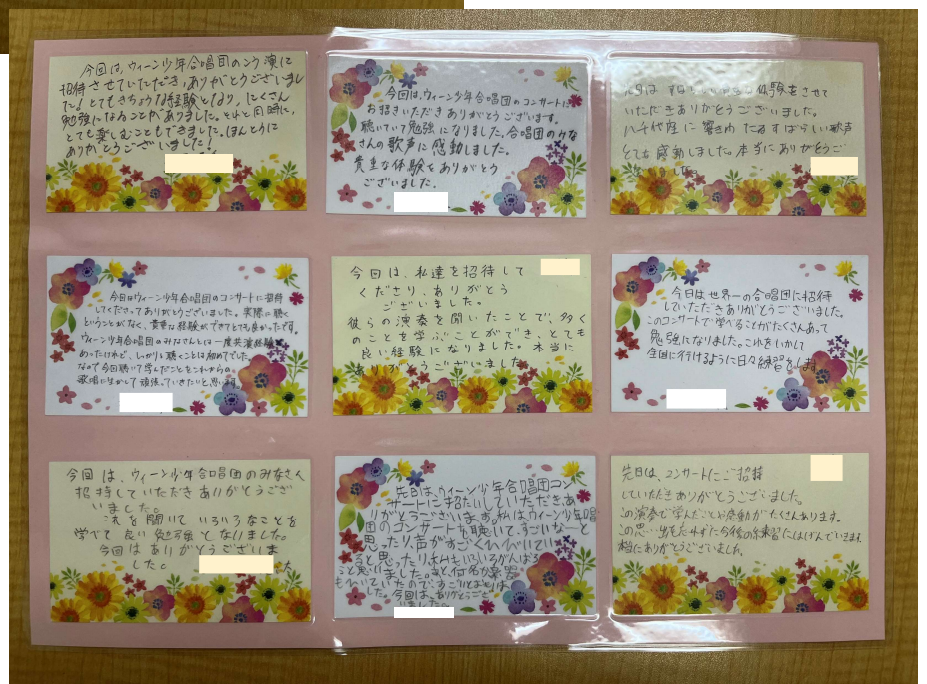 今回は、ウィーン少年合唱団のコン演に
招待させていただき、ありがとうございまし
た！とてもきちょうな経験となり、たくさん
勉強になることがありました。それと同時に、
とても楽しむこともできました。ほんとうに
ありがとうございました！
今回は、ウィーン少年合唱団のコンサートに
お招きいただきありがとうございます。
聴いていて勉強になりました。合唱団のみな
さんの歌声に感動しました。
貴重な体験をありがとう
ございました。
体験をさせて
いただきありがとうございました。
八千代座に響きわたるすばらしい歌声
とても感動しました。本当にありがとうご
ました。
今日はウィーン少年合唱団のコンサートに招待
してくださってありがとうございました。実際に聴く
ということがなく、貴重な経験ができてとても良かったです。
ウィーン少年合唱団のみなさんとは一度共演経験も
あったけれど、しっかりと聴くことは初めてでした。
なので今回聴いて学んだことをこれからの
歌唱に生かして頑張っていきたいと思います
今回は、私達を招待して
くださり、ありがとう
ございました。
彼らの演奏を聞いたことで、多く
のことを学ぶことができ、とても
良い経験になりました。本当に
ありがとうございました
今日は世界一の合唱団に招待
していただきありがとうございました。
このコンサートで学べることがたくさんあって
勉強になりました。これをいかして
全国に行けるように日々練習をします。
今回は、ウィーン少年合唱団のみなさん
招待していただきありがとうござ
いました。
これを聞いていろいろなことを
学べて良い勉強となりました。
今回はありがとうございま
した。
先日は、ウィーン少年合唱団コン
サートに招たいしていただきあ
りがとうございます。私はウィーン少年唱
団のコンサートを聴いて、すごいなーと
思ったり声がすごくきれい
と思ったり私もいろいろがんばる
と思いました。
もれいていたので、すごいとおもいま
した。今回は、ありがとうござ
いました。
先日は、コンサートにご招待
していただきありがとうございました。
この演奏で学んだことや感動がたくさんあります。
この思い出を忘れずに今後の練習にはげんでいきます。
本当にありがとうございました。